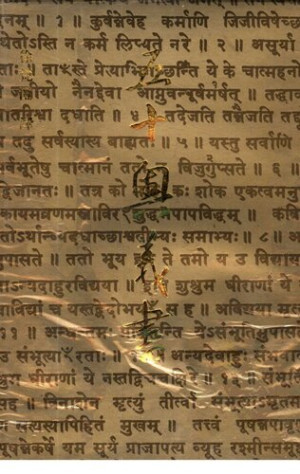 नम् ॥ १ ॥ कुर्वन्नेवेह कर्माणि जिजीविषेच्छ
थेतोऽस्ति न कर्म लिप्यते नरे ॥ २ ॥ असूर्या
ताꣳस्ते प्रेत्याभिगच्छन्ति ये के चात्महनो
जवीयो नैनद्देवा आप्नुवन्पूर्वमर्षत् । तद्धाव
मातरिश्वा दधाति ॥ ४ ॥ तदेजति तन्नैजति तद्
तदु सर्वस्यास्य बाह्यतः ॥ ५ ॥ यस्तु सर्वाणि
सर्वभूतेषु चात्मानं ततो विजुगुप्सते ॥ ६ ॥
द्विजानतः । तत्र को कः शोक एकत्वमनु
कायमव्रणमस्नाविरꣳ शुद्धमपापविद्धम् । कवि
तोऽर्थान्व्यदधाच्छाश्वतीभ्यः समाभ्यः ॥ ८ ॥ अ
पासते । ततो भूय इव ते तमो य उ विद्याय
ऽन्यदाहुरविद्यया । इति शुश्रुम धीराणां ये
विद्यां च यस्तद्वेदोभयꣳ सह । अविद्यया मृत्यु
११ ॥ अन्धन्तमः प्रविशन्ति येऽसंभूतिमुपास
उ संभूत्याꣳरताः ॥ अन्यदेवाहुः संभवा
श्रुम धीराणां ये नस्तद्विचचक्षिरे ॥ १३ ॥ संभूतिं
सह । विनाशेन मृत्युं तीर्त्वा संभूत्याऽमृतम
सत्यस्यापिहितं मुखम् । तत्त्वं पूषन्नपावृणु
पूषन्नेकर्षे यम सूर्य प्राजापत्य व्यूह रश्मीन्समू
五十奥義書